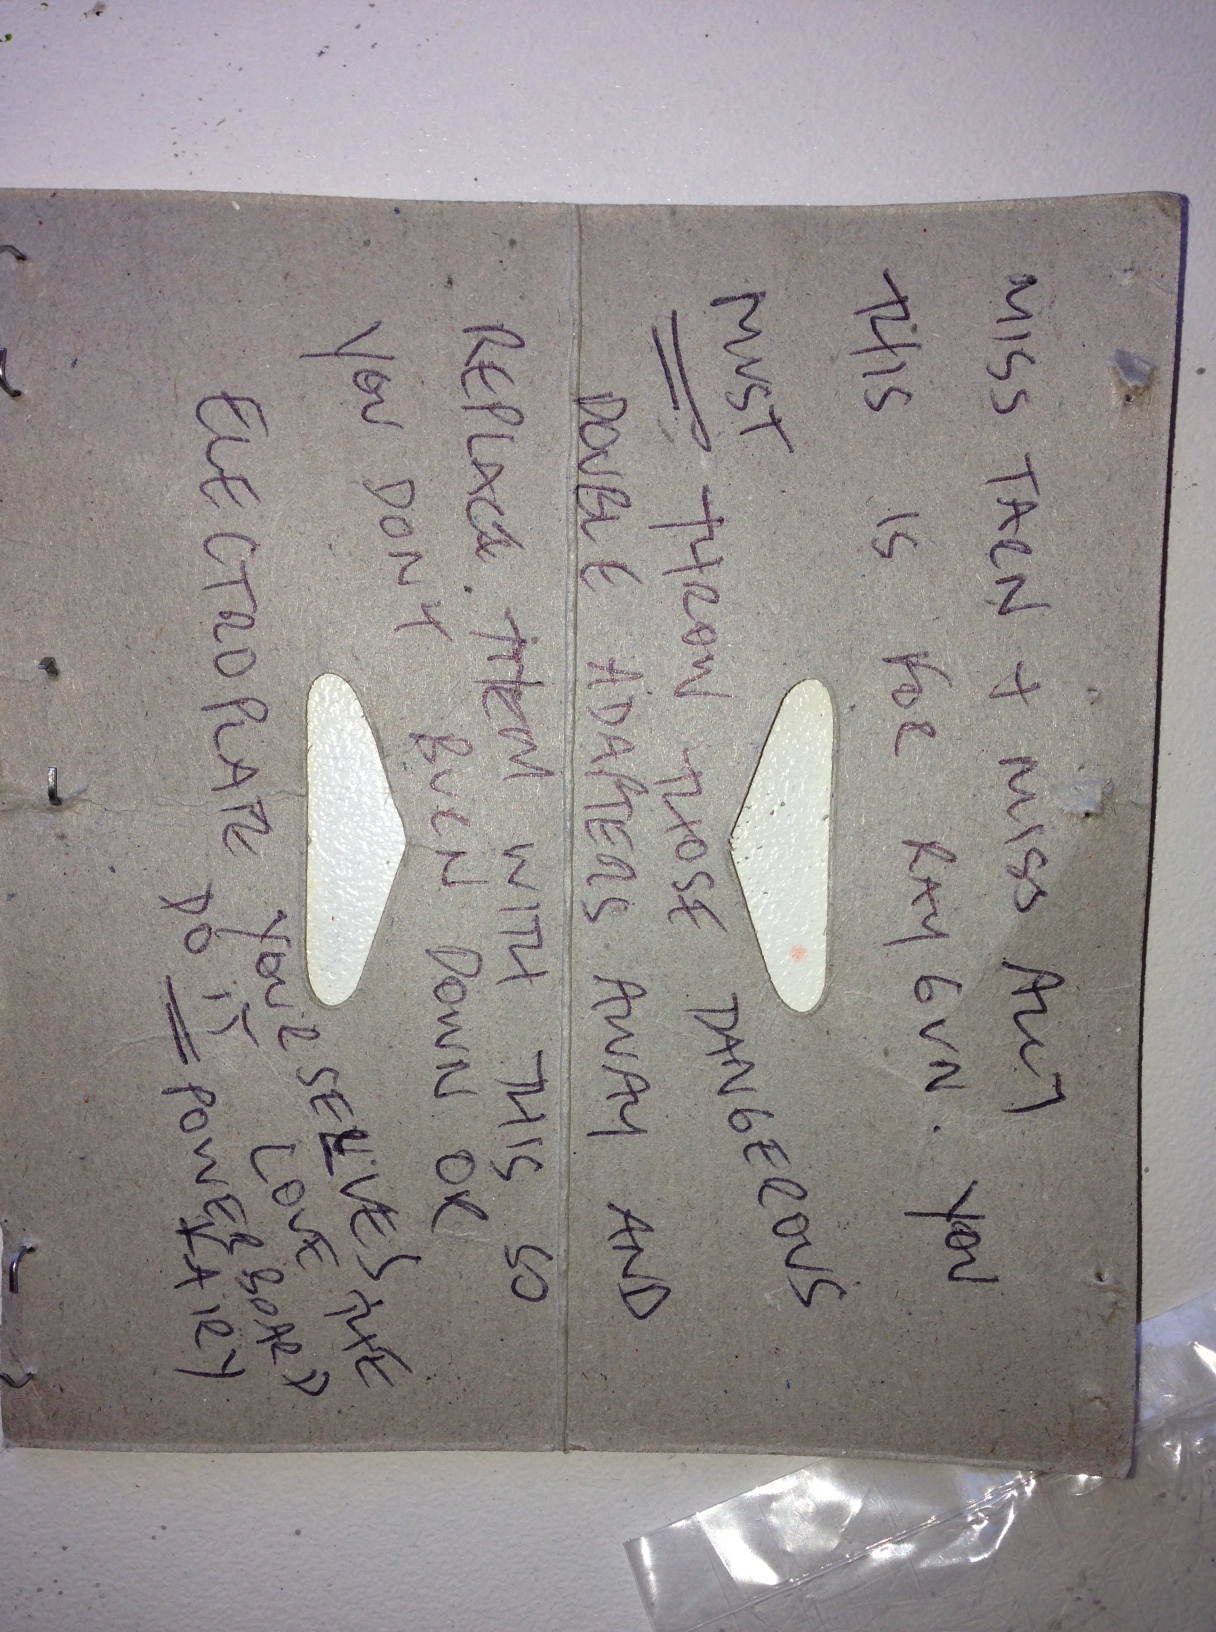 MISS TAEN + MISS ALLY
THIS IS FOR RAYGUN. YOU
MUST THROW THOSE DANGEROUS
DOUBLE ADAPTERS AWAY AND
REPLACE THEM WITH THIS SO
YOU DON'T BURN DOWN OR
ELECTROPLATE YOURSELVES
DO IT LOVE THE
POWERBOARD
FAIRY